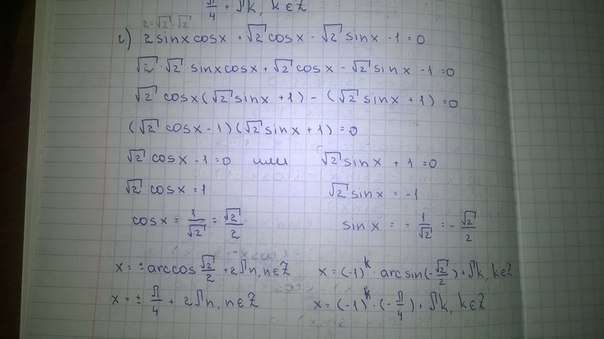 π/4 + πk, k∈Z
2=√2·√2
г) 2sinxcosx + √2 cosx - √2 sinx - 1 = 0
√2 · √2 sinxcosx + √2 cosx - √2 sinx - 1 = 0
√2 cosx(√2 sinx + 1) - (√2 sinx + 1) = 0
(√2 cosx - 1)(√2 sinx + 1) = 0
√2 cosx - 1 = 0 или √2 sinx + 1 = 0
√2 cosx = 1 √2 sinx = -1
cosx = 1/√2 = √2/2 sinx = - 1/√2 = - √2/2
x = ± arccos √2/2 + 2πn, n∈Z x = (-1)^k arcsin(-√2/2) + πk, k∈Z
x = ± π/4 + 2πn, n∈Z x = (-1)^k · (-π/4) + πk, k∈Z